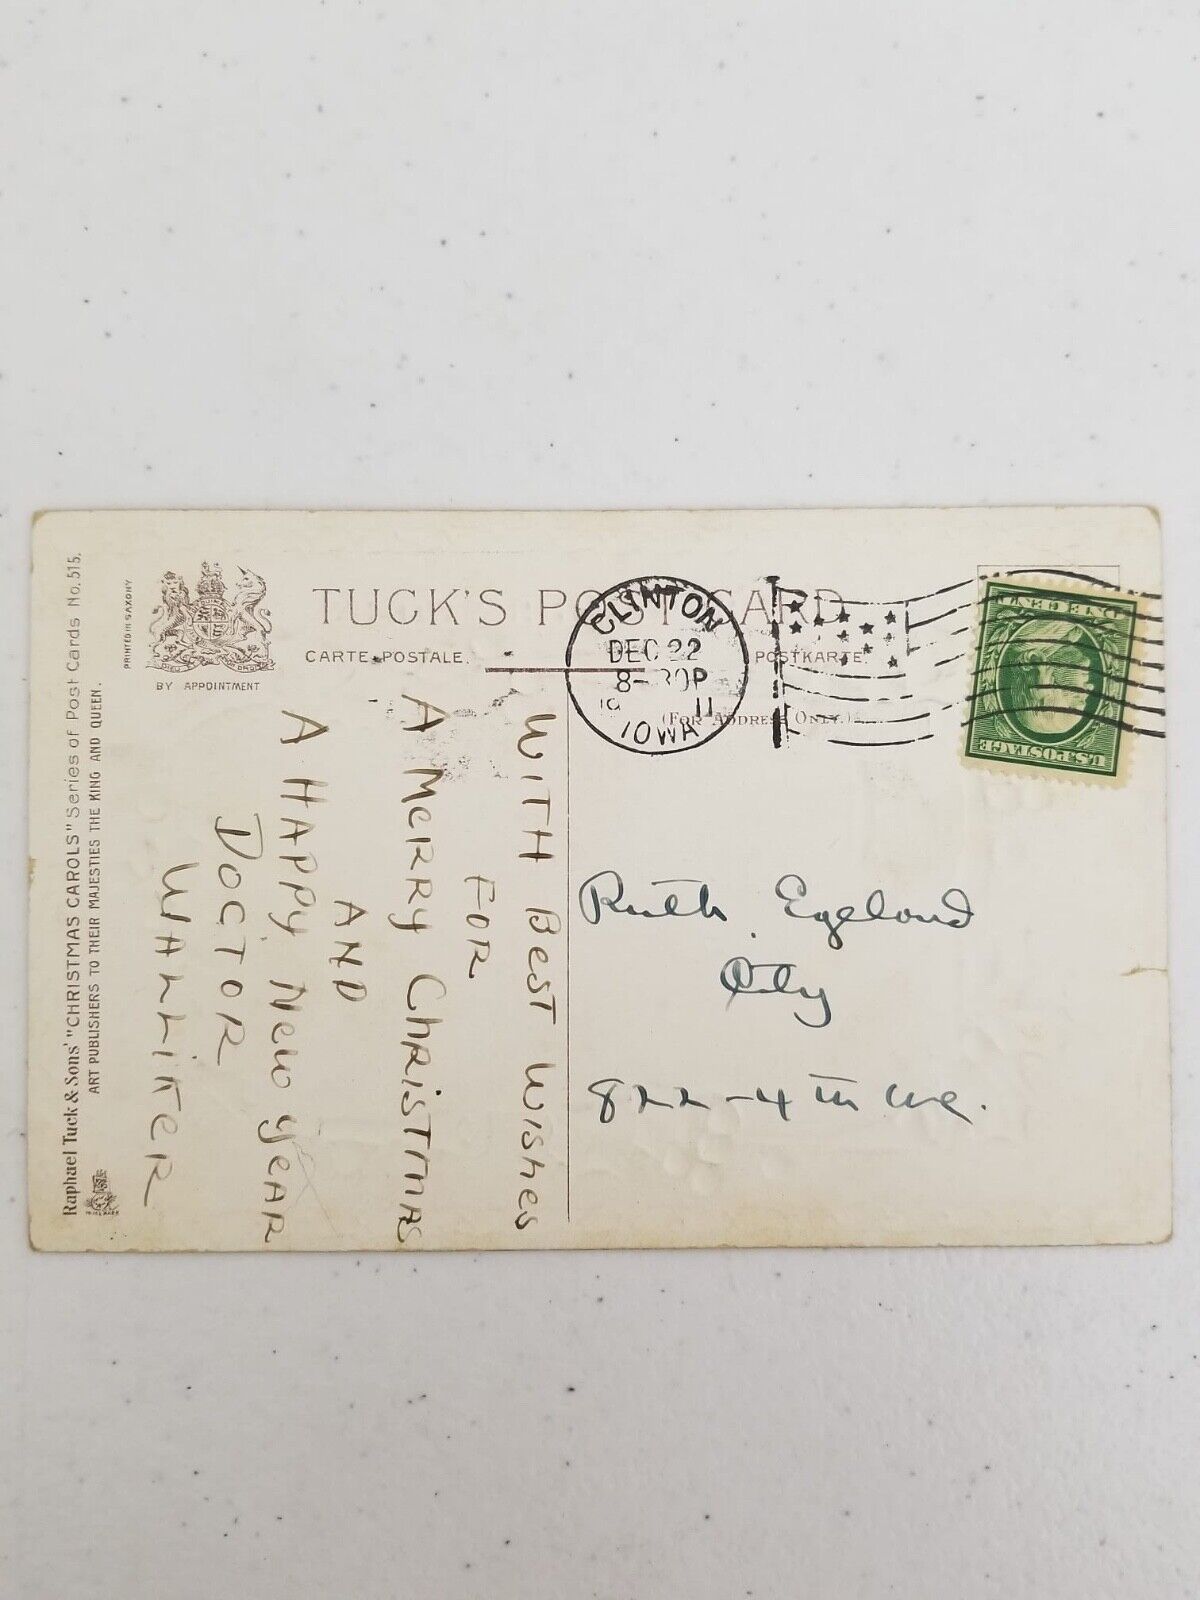 Raphael Tuck & Sons' "CHRISTMAS CAROLS" Series of Post Cards No. 515.
ART PUBLISHERS TO THEIR MAJESTIES THE KING AND QUEEN.
PRINTED IN SAXONY
BY APPOINTMENT
TUCK'S POST CARD
CARTE POSTALE.
POSTKARTE.
(FOR ADDRESS ONLY.)
CLINTON
DEC 22
8-30P
19 11
IOWA
U.S. POSTAGE
ONE CENT
WITH BEST WISHES
FOR
A MERRY CHRISTMAS
AND
A HAPPY NEW YEAR
DOCTOR
Ruth Egeland
City
822-4th Ave.